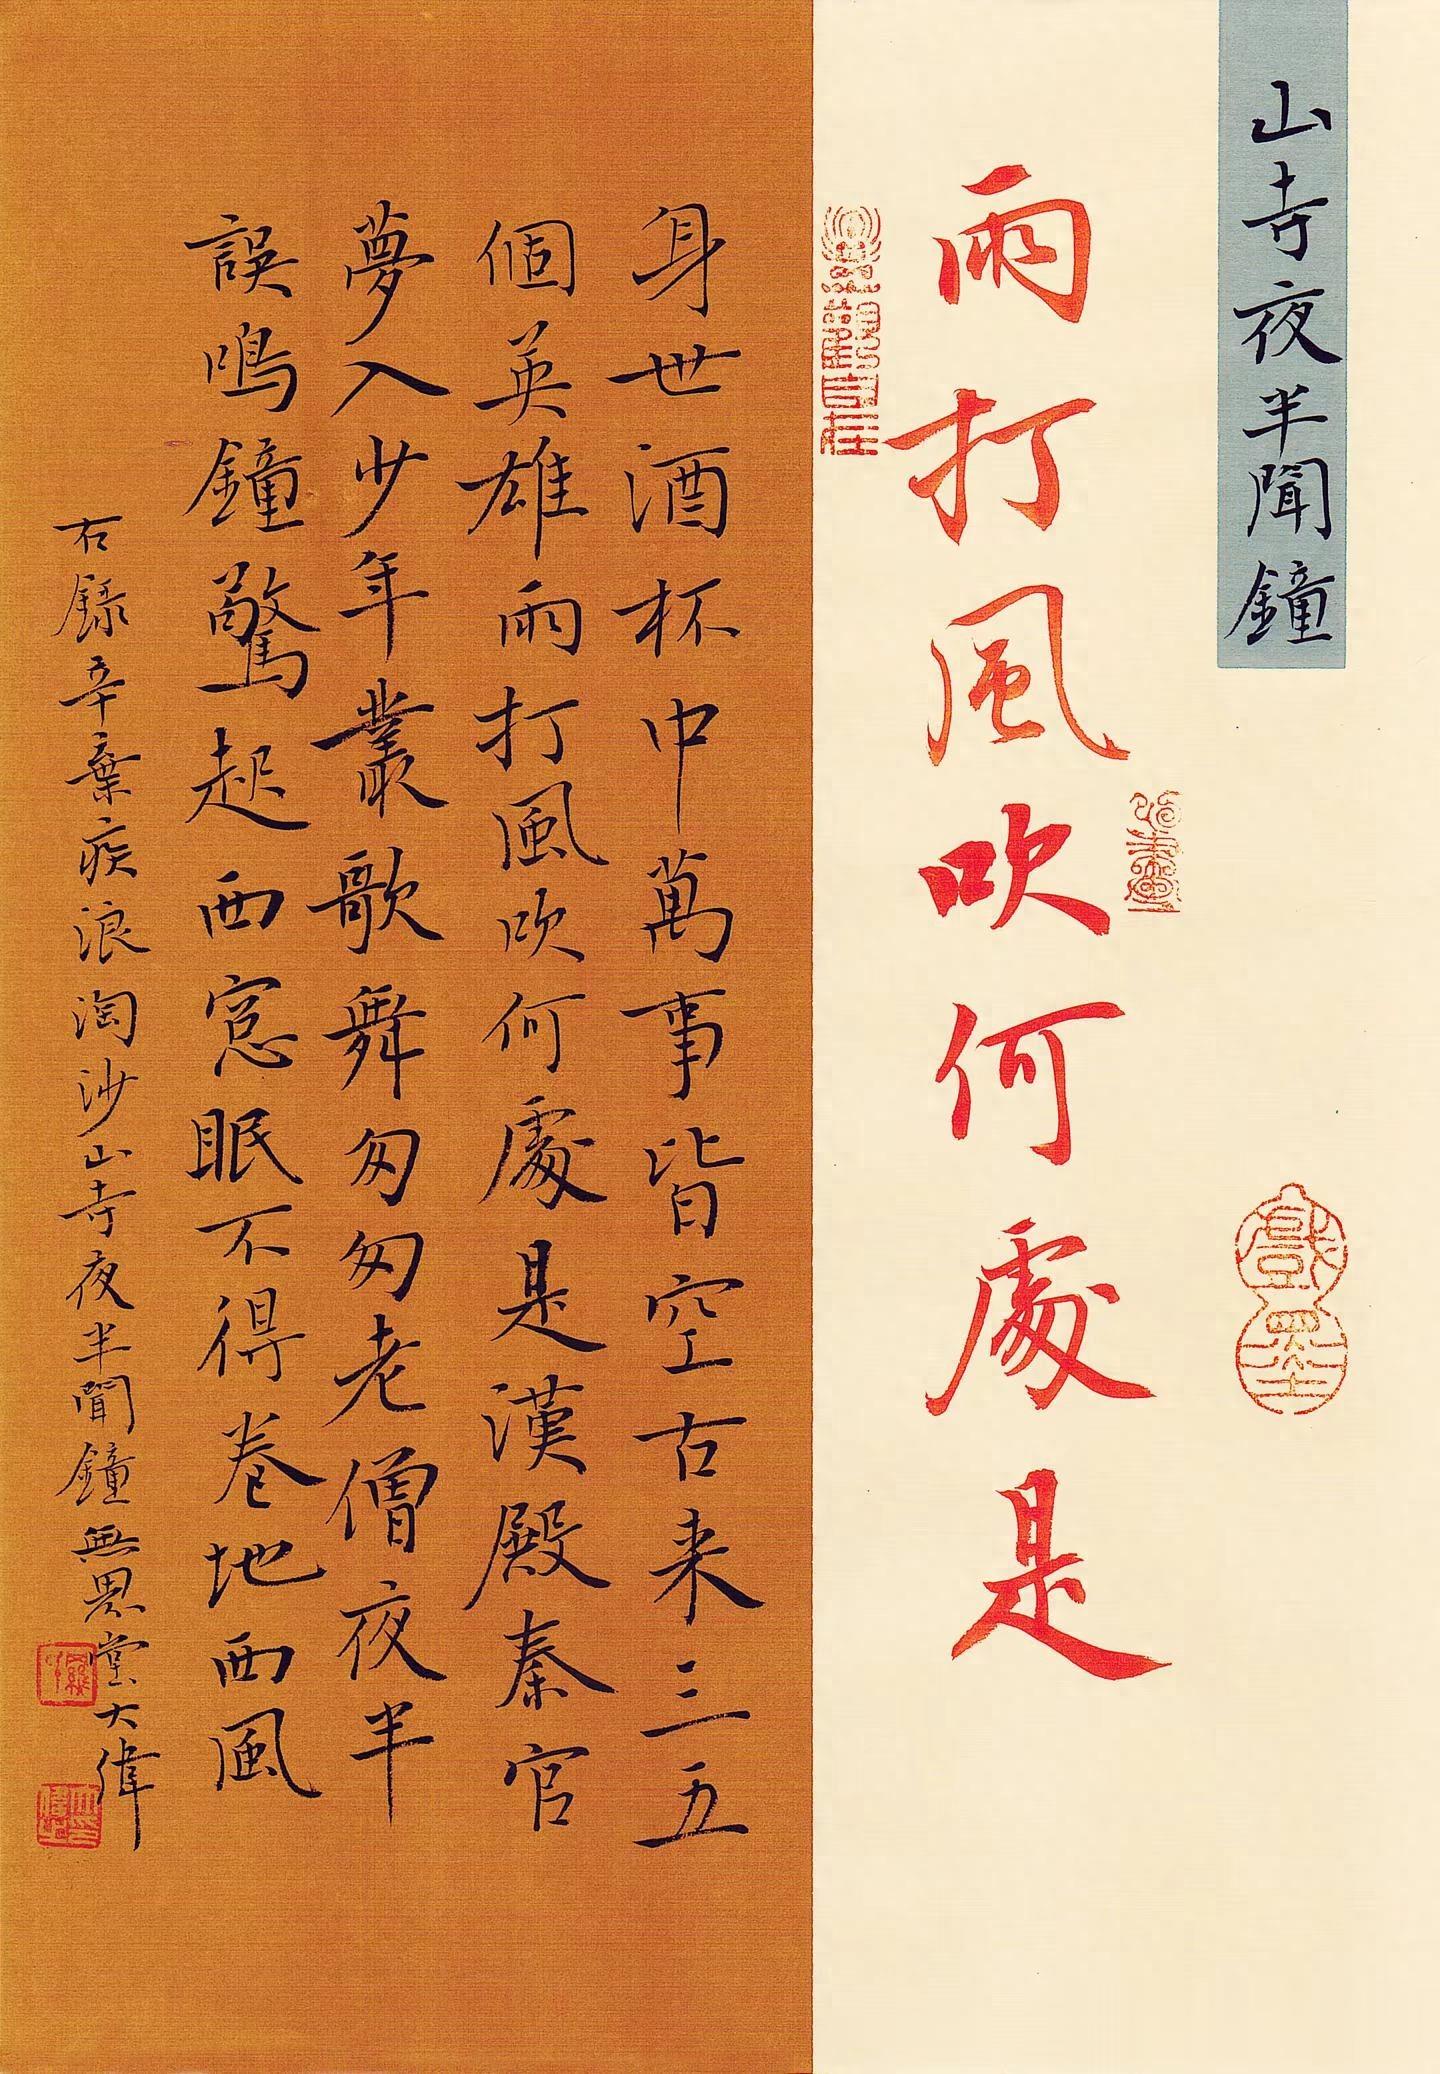 山寺夜半聞鐘
雨打風吹何處是
戲墨
身世酒杯中萬事皆空古来三五
個英雄雨打風吹何處是漢殿秦宫
夢入少年叢歌舞匆匆老僧夜半
誤鳴鐘驚起西窓眠不得卷地西風
右録辛棄疾浪淘沙山寺夜半聞鐘無思堂大偉